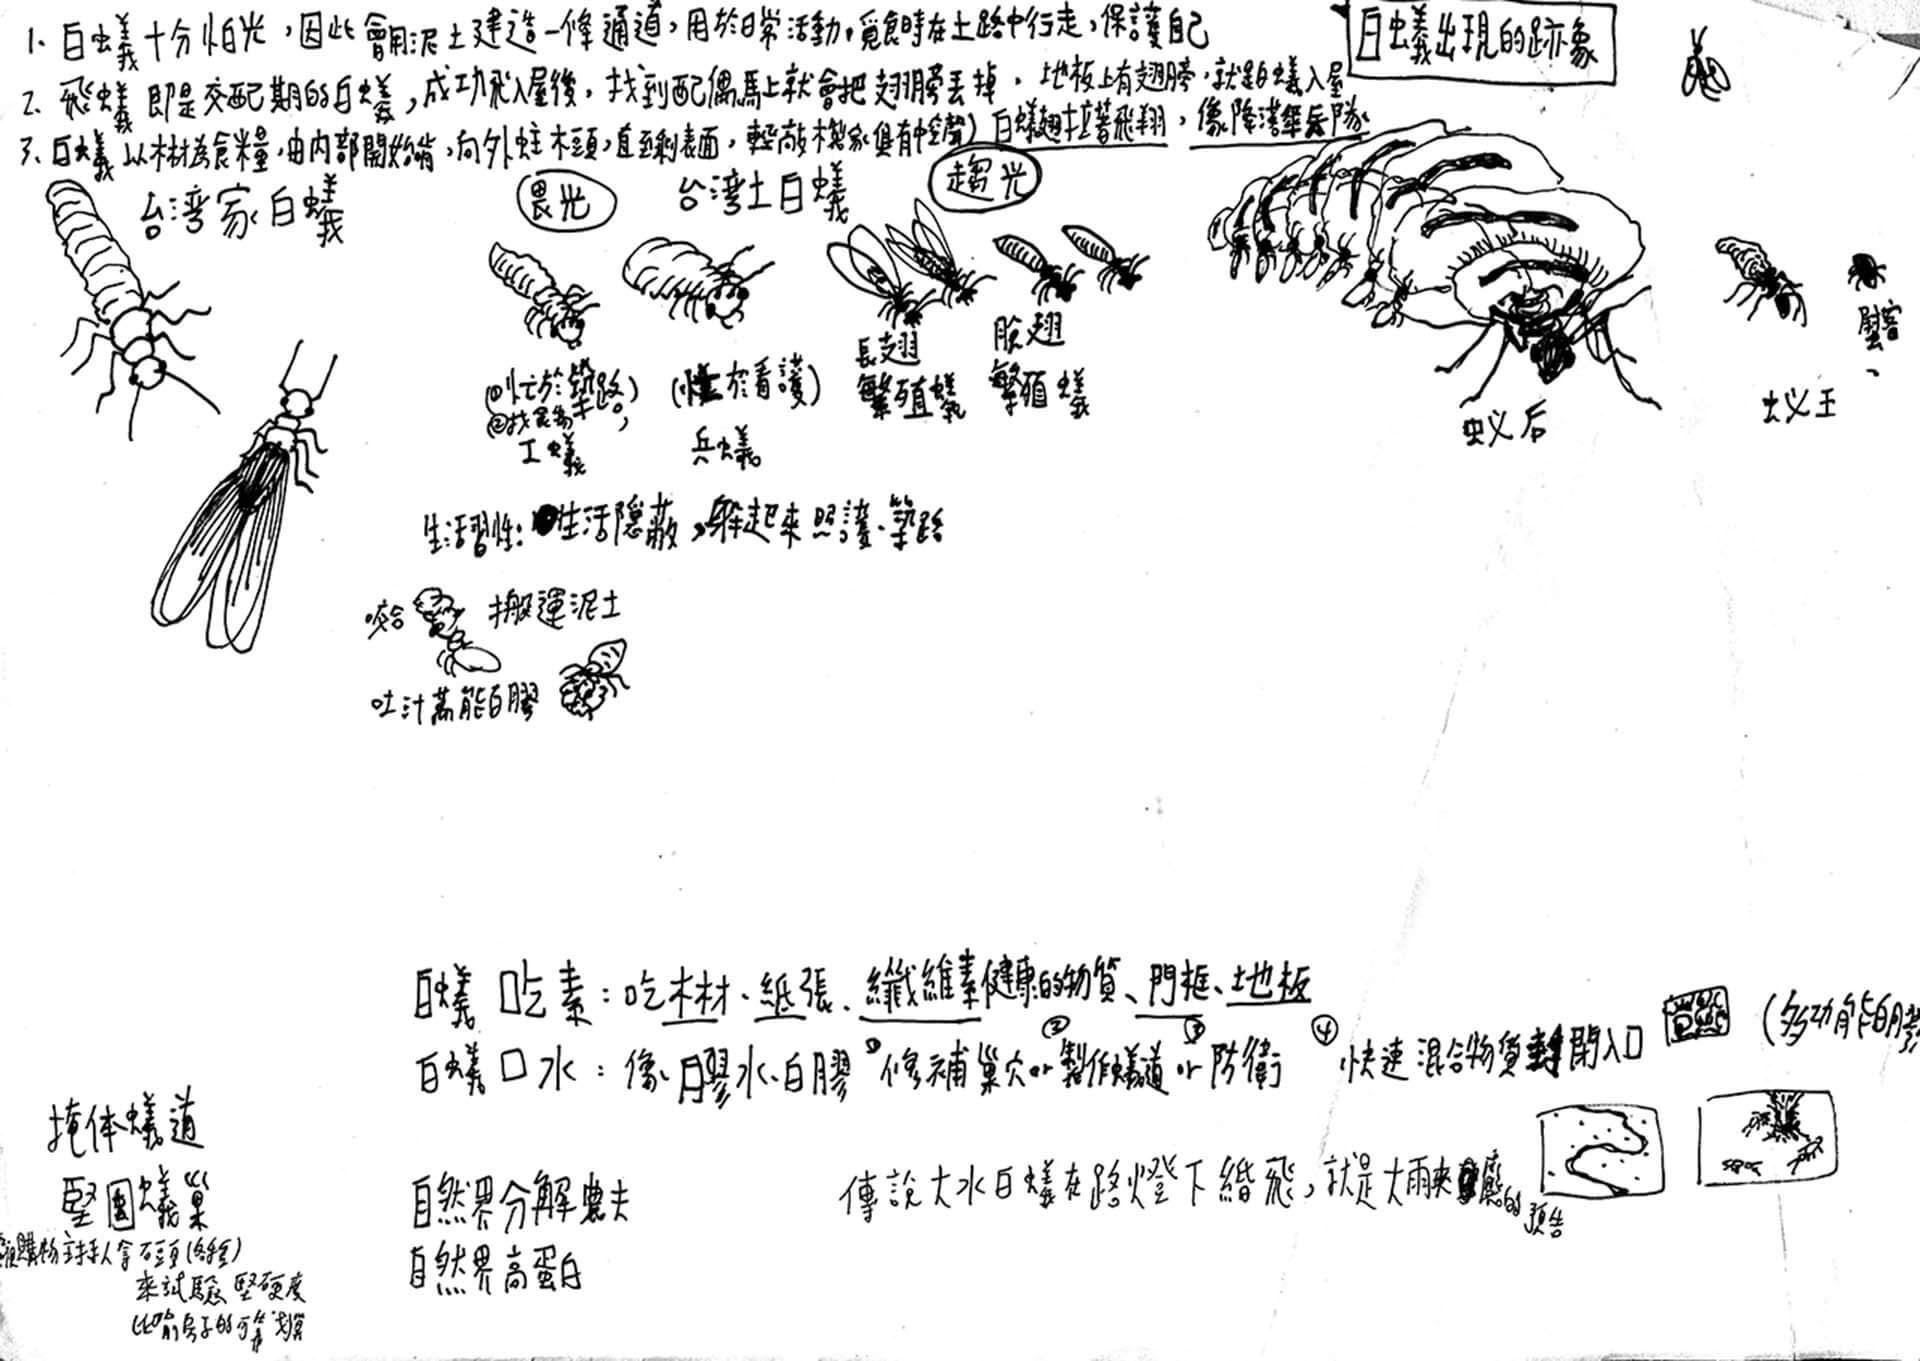 白蟻出現的跡象
1. 白蟻十分怕光，因此會用泥土建造一條通道，用於日常活動，覓食時在土路中行走，保護自己
2. 飛蟻即是交配期的白蟻，成功飛入屋後，找到配偶馬上就會把翅膀丟掉。地板上有翅膀，就是白蟻入屋
3. 白蟻以木材為食糧，由內部開始啃，向外蛀木頭，直至剩表面，輕敲木製家俱有中空聲）白蟻翅拉著飛翔，像降落傘兵隊
台灣家白蟻
畏光
台灣土白蟻
趨光
(①忙於築路)
②找食物
工蟻
(忙於看護)
兵蟻
長翅
繁殖蟻
脫翅
繁殖蟻
蚁后
蚁王
生活習性：生活隱蔽，躲起來照護、築路
咬合
搬運泥土
吐汁萬能白膠
白蟻吃素：吃木材、紙張、纖維素健康的物質、門框、土地板
白蟻口水：像膠水、白膠 ①修補巢穴 ②製作蟻道 ③防衛 ④快速混合物質封閉入口 (多功能白膠
掩体蟻道
堅固蟻巢
購物主持人拿石頭(各種)
來試驗堅硬度
比喻房子的
自然界分解農夫
自然界高蛋白
傳說大水白蟻在路燈下紛飛，就是大雨來的預告